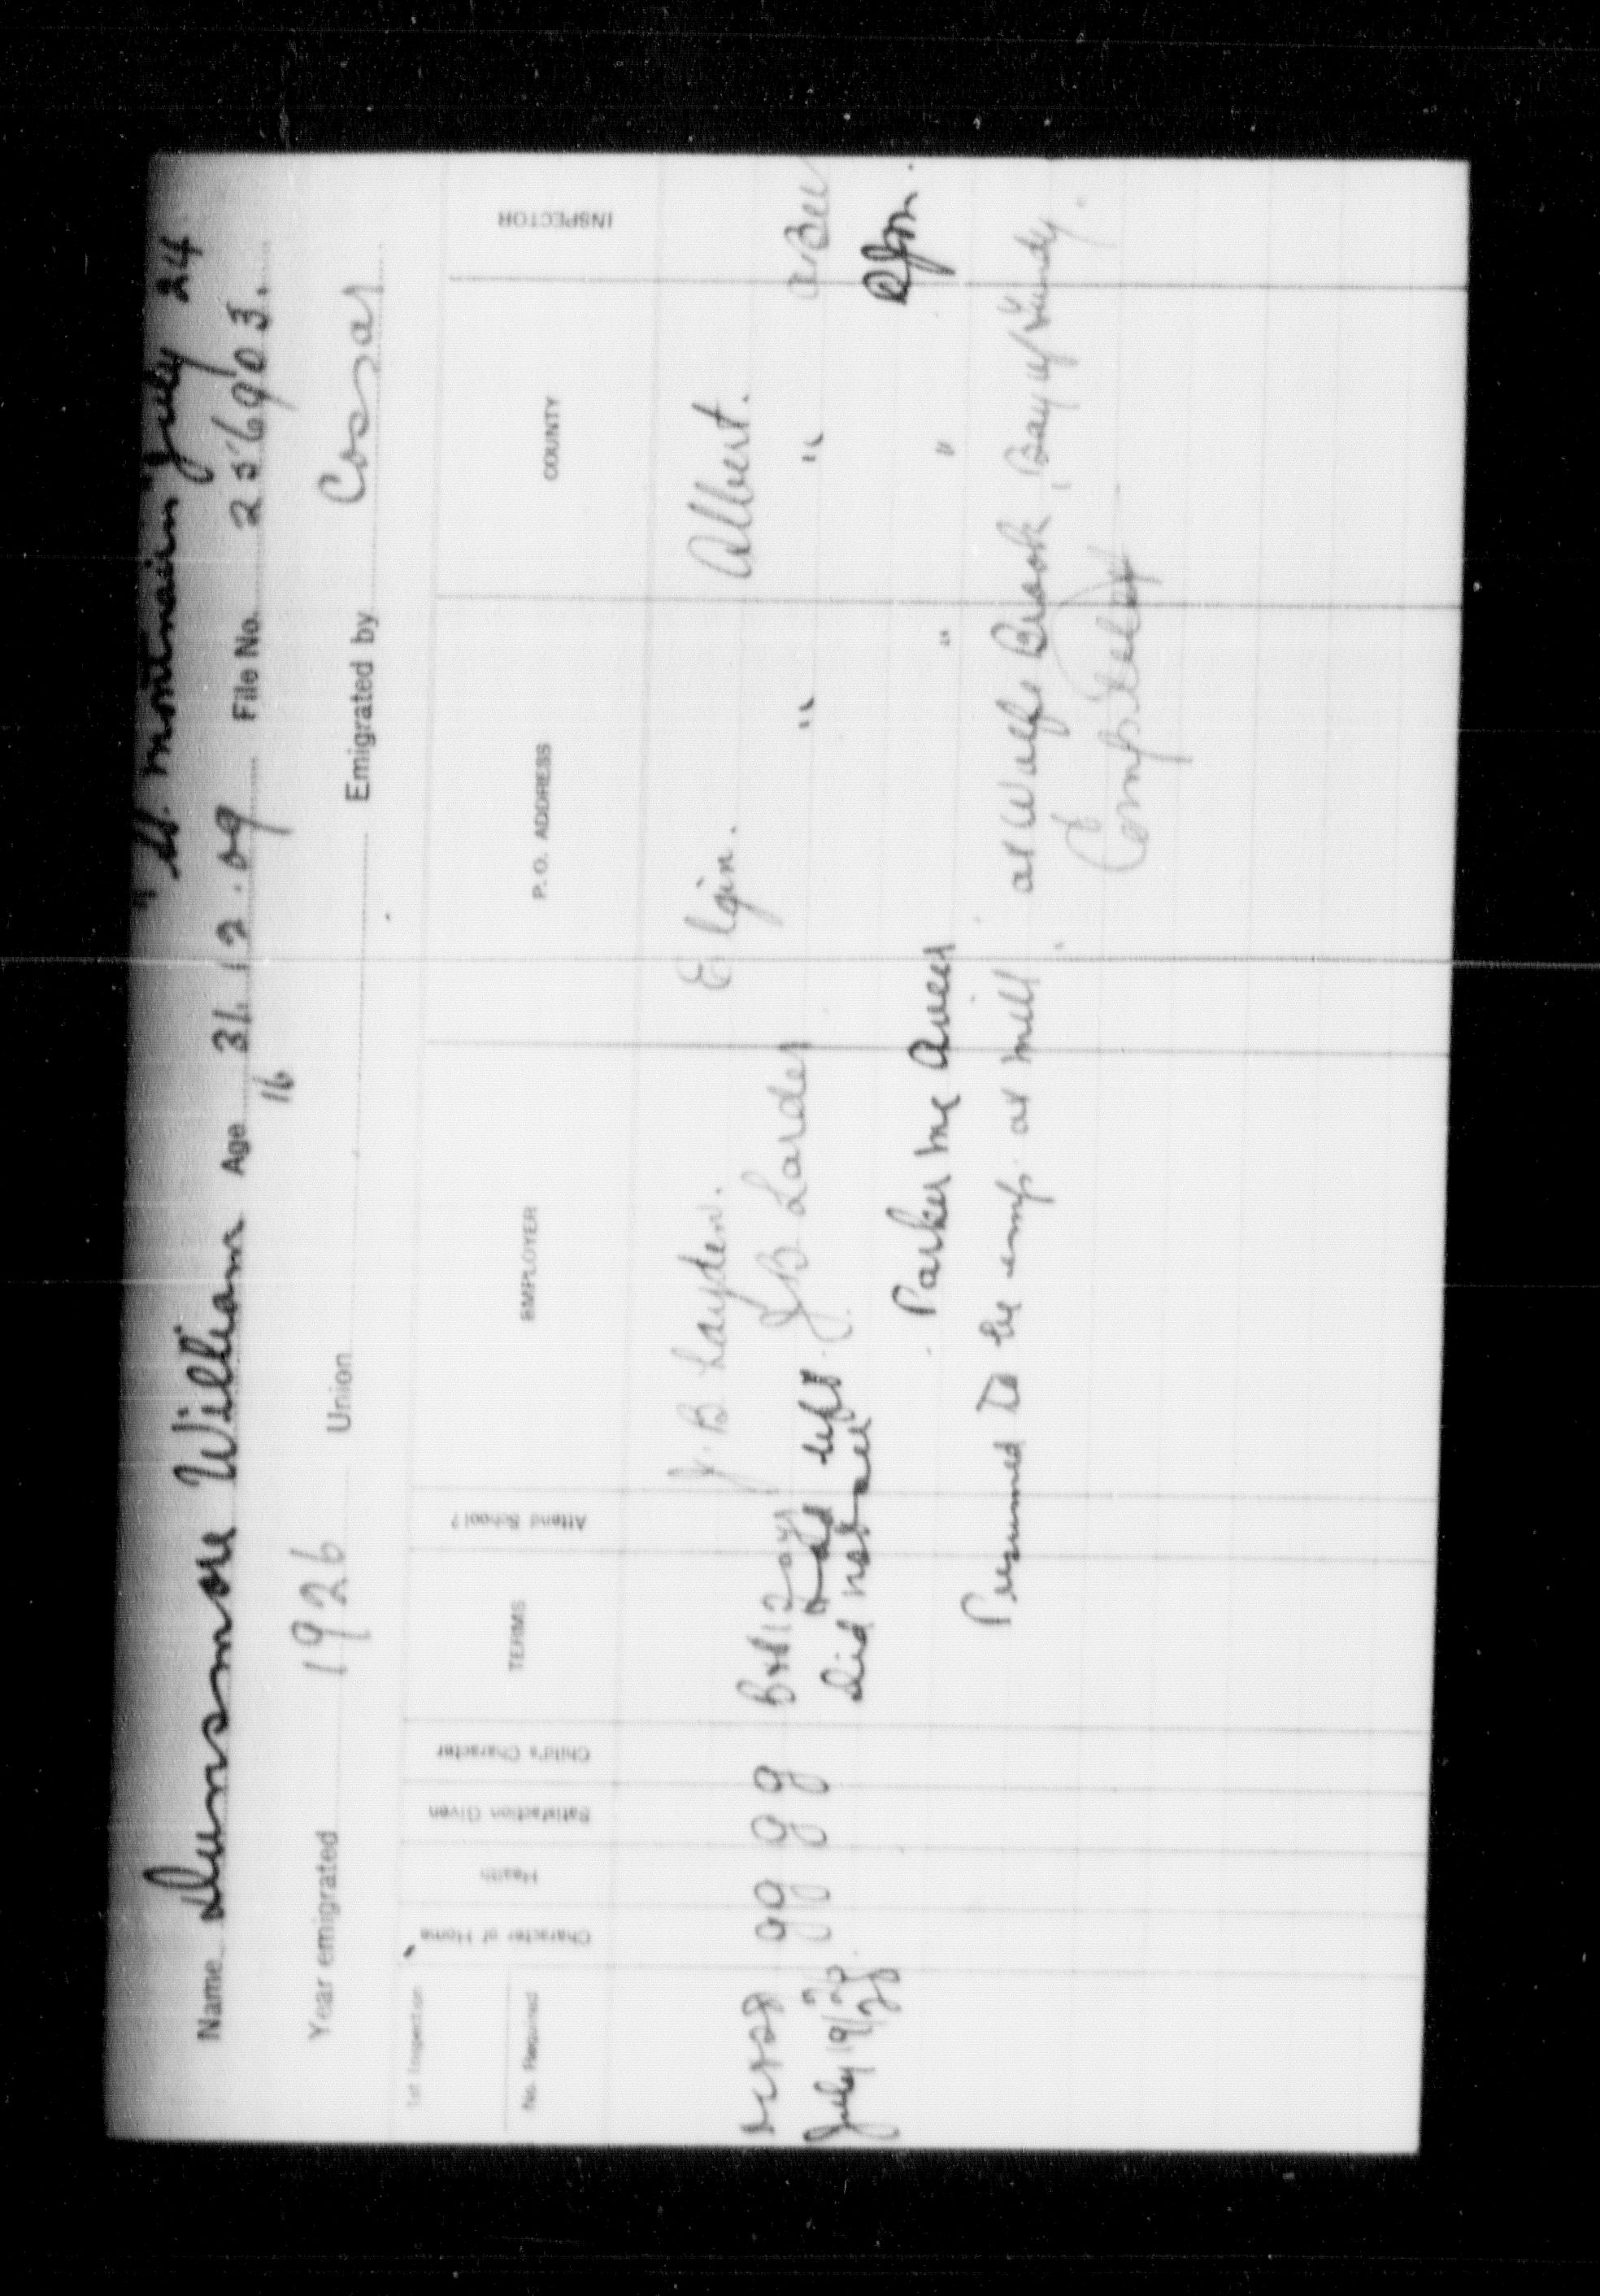 "St. Montnairn" July 24
Name Dunsmore William Age 31.12.09 File No. 256903.
16
Year emigrated 1926 Union Emigrated by Cossar
1st Inspection No. Required Character of Home Health Satisfaction Given Child's Character TERMS Attend School? EMPLOYER P.O. ADDRESS COUNTY INSPECTOR
J. B. Layden. Elgin. Albert.
g g g g J B Larder " "
July 19/26 g g g g Had left.
Did not
Parker Mc " "
Presumed to be emp. at mill at Wolfe Brook, Bay of Fundy.
Completed